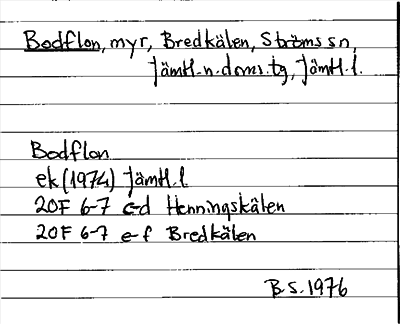 Bodflon, myr, Bredkälen, Ströms sn,
Jämtl. n. doms. tg, Jämtl. l.
Bodflon
ek (1974) Jämtl. l
20F 6-7 c-d Henningskälen
20F 6-7 e-f Bredkälen
B.S. 1976